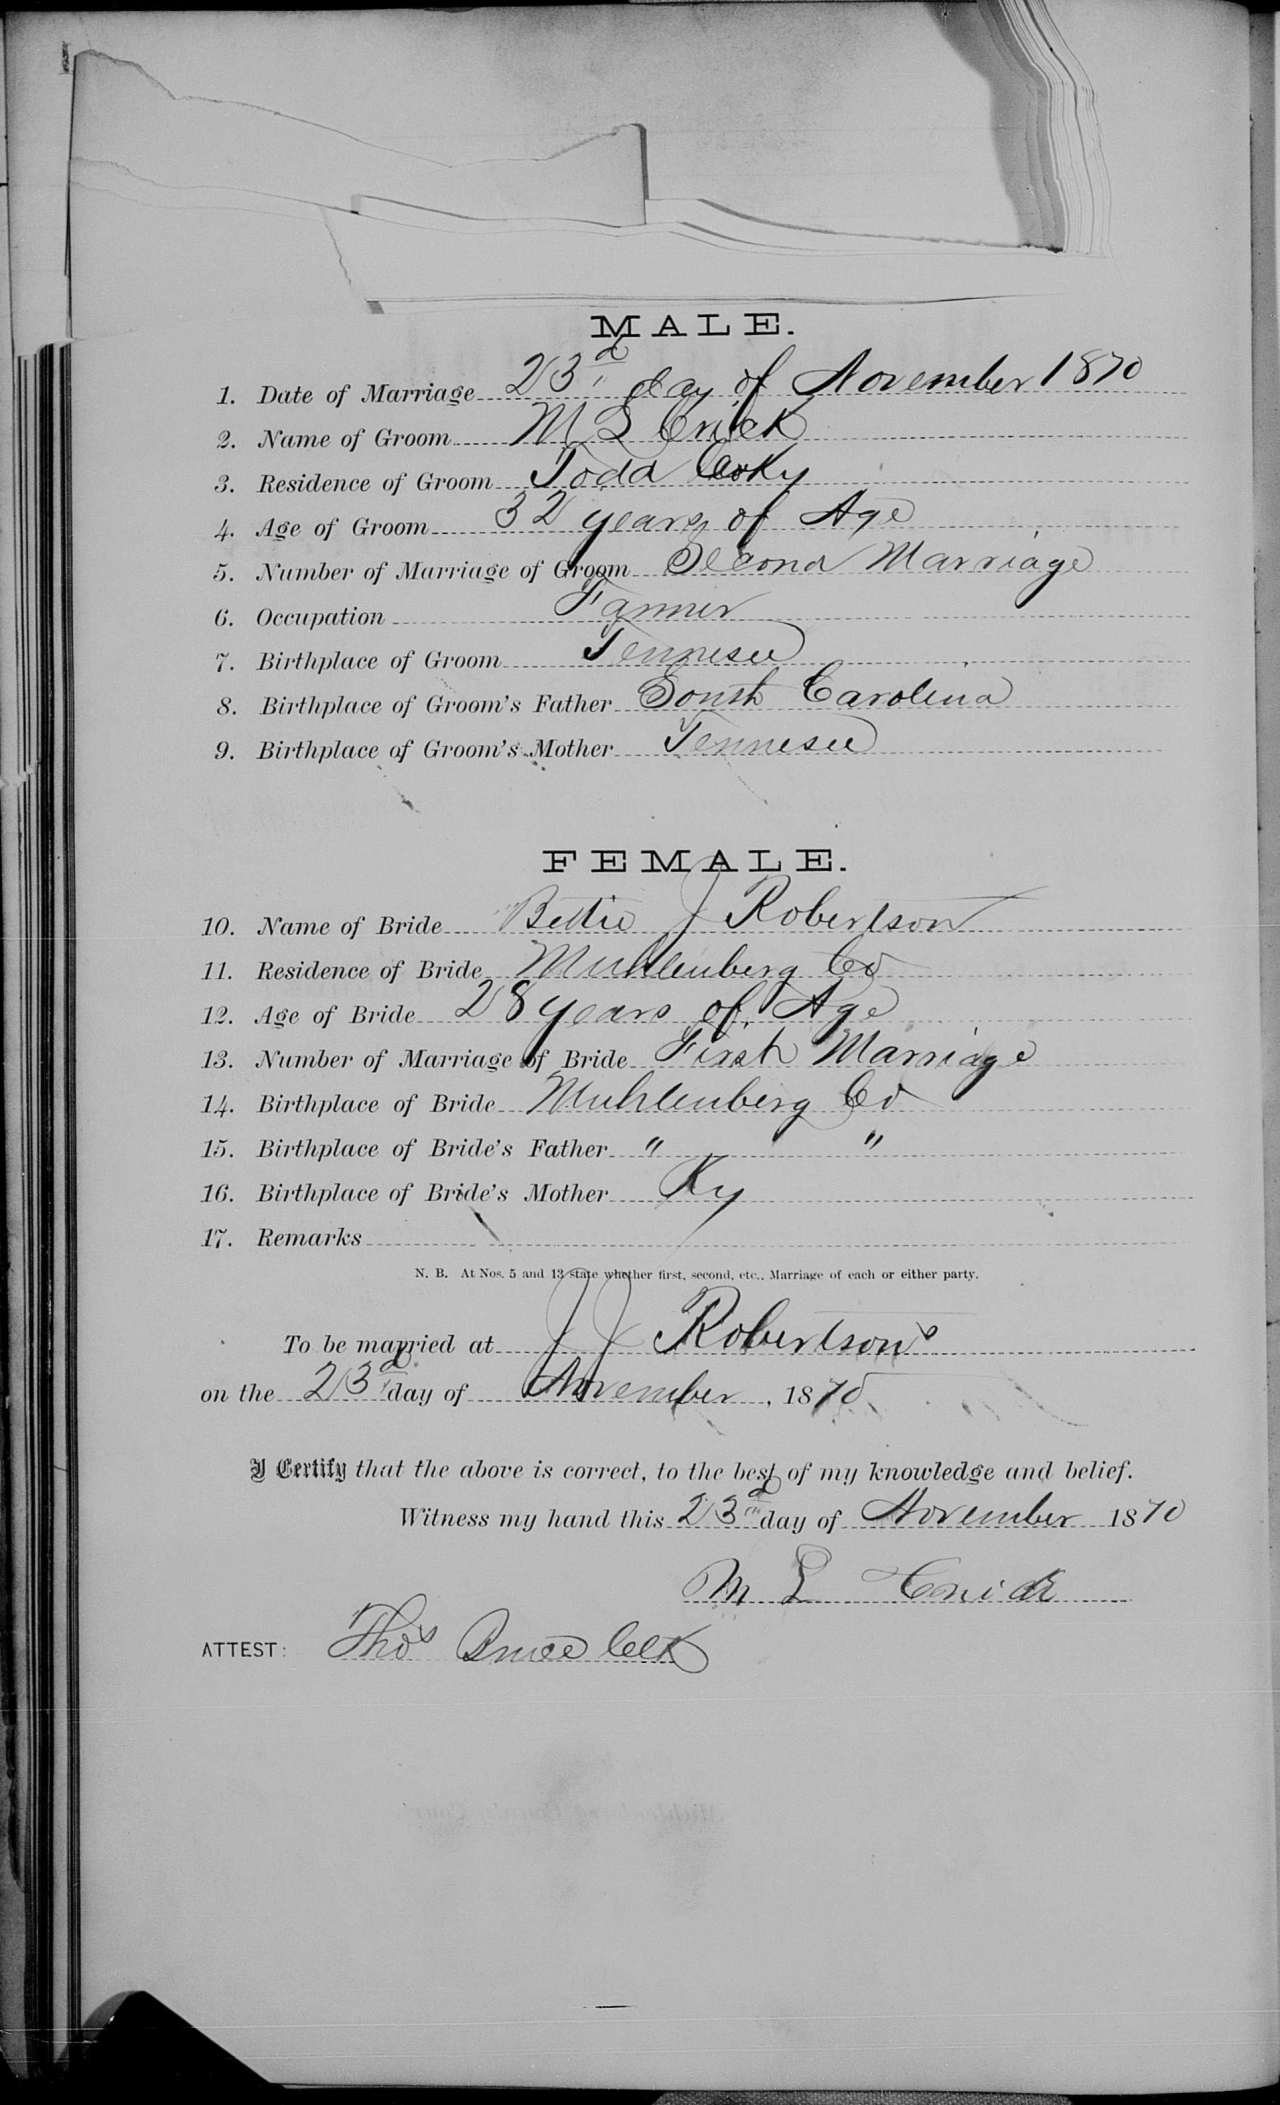 MALE.
1. Date of Marriage 23d day of November 1870
2. Name of Groom M L Crick
3. Residence of Groom Todd Co Ky
4. Age of Groom 32 years of Age
5. Number of Marriage of Groom Second Marriage
6. Occupation Farmer
7. Birthplace of Groom Tennesee
8. Birthplace of Groom's Father South Carolina
9. Birthplace of Groom's Mother Tennesee
FEMALE.
10. Name of Bride Bettie J Robertson
11. Residence of Bride Muhlenberg Co
12. Age of Bride 28 years of Age
13. Number of Marriage of Bride First Marriage
14. Birthplace of Bride Muhlenberg Co
15. Birthplace of Bride's Father " "
16. Birthplace of Bride's Mother Ky
17. Remarks
N. B. At Nos. 5 and 13 state whether first, second, etc., Marriage of each or either party.
To be married at J J Robertson's
on the 23d day of November, 1870
I Certify that the above is correct, to the best of my knowledge and belief.
Witness my hand this 23d day of November 1870
M L Crick
ATTEST: Thos Bruce Clk